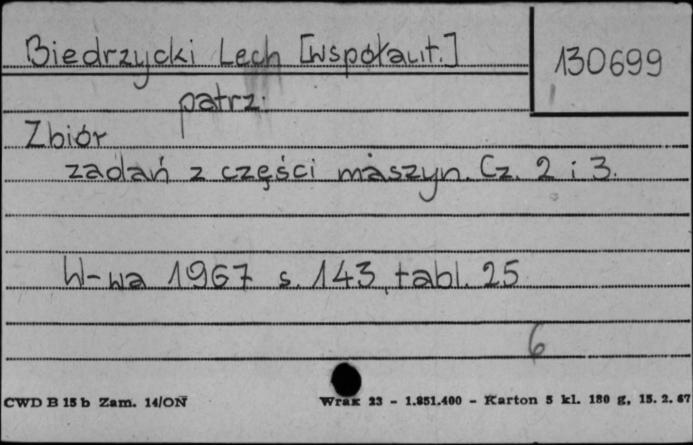 Biedrzycki Lech [współaut.]
130699
patrz:
Zbiór
zadań z części maszyn. Cz. 2 i 3.
W-wa 1967 s. 143, tabl. 25
6
CWD B 15 b Zam. 14/ON
Wrak 23 - 1.851.400 - Karton 5 kl. 180 g, 15. 2. 67